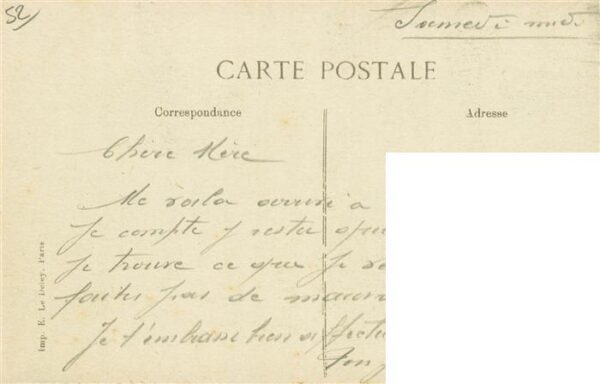 52/
Samedi midi
CARTE POSTALE
Correspondance
Adresse
Chère Mère
Me voila arrivé a
Je compte y rester
Je trouve ce que je
faites pas de
Je t'embrasse bien
Ton
Imp. E. Le Deley, Paris